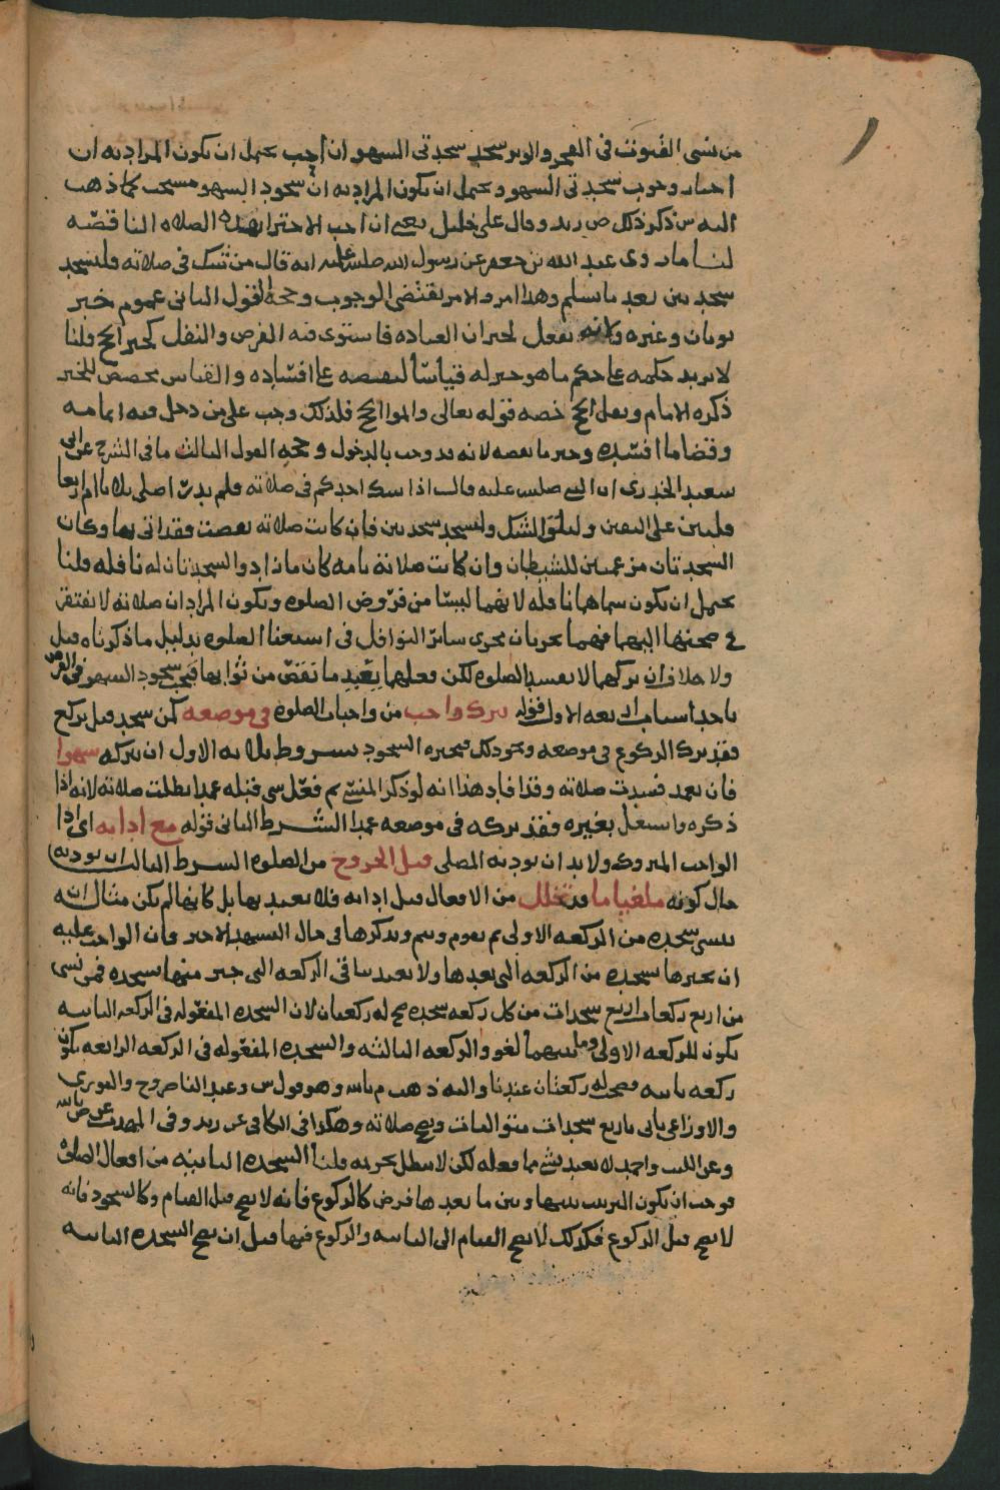 من نسى القنوت فى الفجر والوتر سجد سجدتى السهو ان احب يحتمل ان يكون المراد به ان
احب وجوب سجدتى السهو ويحتمل ان يكون المراد به ان سجود السهو مستحب كما ذهب
اليه من ذكر ذلك ص زيد وقال على خليل يعنى ان احب الاحتراز بهذه الصلاه الناقصه
لنا ما روى عبد الله بن جعفر عن رسول الله صلى عليه انه قال من شك فى صلاته فليسجد
سجدتين بعد ما يسلم وهذا امر والامر يقتضى الوجوب وحجة القول الثانى عموم خبر
ثوبان وغيره ولانه يفعل لجبران العباده فاستوى فيه الفرض والنفل كجبر الحج قلنا
لا يزيد حكمه على حكم ما هو جبر له قياسًا لنقصه على افساده والقياس يخصص الخبر
ذكره الامام ونفل الحج خصه قوله تعالى واتموا الحج فلذلك وجب على من دخل فيه اتمامه
وقضا ما افسده وجبر ما نقصه لانه قد وجب بالدخول وحجه القول الثالث ما فى الشرح عن ابى
سعيد الخدرى ان النبى صلى عليه قال اذا شك احدكم فى صلاته فلم يدر اصلى ثلاثا ام اربعا
فليبن على اليقين وليلق الشك وليسجد سجدتين فان كانت صلاته نقصت فقد اتى بها وكان
السجدتان مرغمتين للشيطان وان كانت صلاته تامه كان ما زاد والسجدتان له نافله قلنا
يحتمل ان يكون سماهما نافله لانهما ليستا من فروض الصلوه ويكون المراد ان صلاته لا تفتقر
فى صحتها اليهما فهما يجريان مجرى سائر النوافل فى استغنا الصلوه بدليل ما ذكرناه قبل
ولا خلاف ان تركهما لا يفسد الصلوه لكن فعلهما يفيد ما نقص من ثوابها فيجب سجود السهو فى الفرض
باحد اسباب اربعه الاول قوله ترك واجب من واجبات الصلوه فى موضعه كمن سجد قبل يركع
فقد ترك الركوع فى موضعه ونحو ذلك فيجبره السجود بشروط ثلاثه الاول ان يتركه سهوا
فان تعمد فسدت صلاته وقد افاد هذا انه لو ذكر المنسى ثم فعل شى قبله عمدا بطلت صلاته لانه اذا
ذكره واشتغل بغيره فقد تركه فى موضعه عمدا الشرط الثانى قوله مع ادائه اى اذا
الواجب المتروك ولا بد ان يوديه المصلى قبل الخروج من الصلوه الشرط الثالث ان يوديه
حال كونه ملغيا ما قد تخلل من الافعال قبل ادائه فلا يعتد بها بل كانها لم تكن مثال انه
ينسى سجده من الركعه الاولى ثم يقوم ويتم ويذكرها فى حال التشهد الاخير فان الواجب عليه
ان يجبرها بسجده من الركعه التى بعدها ولا يعتد بباقى الركعه التى جبر منها بسجده فمن نسى
من اربع ركعات اربع سجدات من كل ركعه سجده صح له ركعتان لان السجده المفعوله فى الركعه الثانيه
تكون للركعه الاولى وما بينهما لغو والركعه الثالثه والسجده المفعوله فى الركعه الرابعه تكون
ركعه ثانيه فصحت له ركعتان عندنا واليه ذهب م بالله وهو قول س وعبد الله بن الحسن والثورى
والاوزاعى ياتى باربع سجدات متواليات وتصح صلاته وهكذا فى الكافى عن زيد
وعن الليث واحمد لا يعتد بشى مما فعله لكن لا تبطل تحريمته قلنا السجده الثانيه من افعال الصلوه
فوجب ان يكون الترتيب بينها وبين ما بعدها فرض كالركوع فانه لا يصح قبل القيام وكالسجود فانه
لا يصح قبل الركوع فكذلك لا يصح القيام الى الثانيه والركوع فيها قبل ان تصح السجده الثانيه